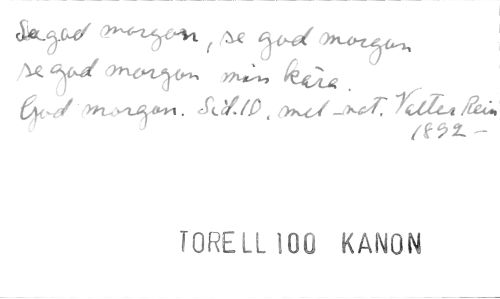 Se god morgon, se god morgon
se god morgon min kära.
God morgon. Sid. 10. mel-not. Valter Rein
1892 -
TORELL 100 KANON